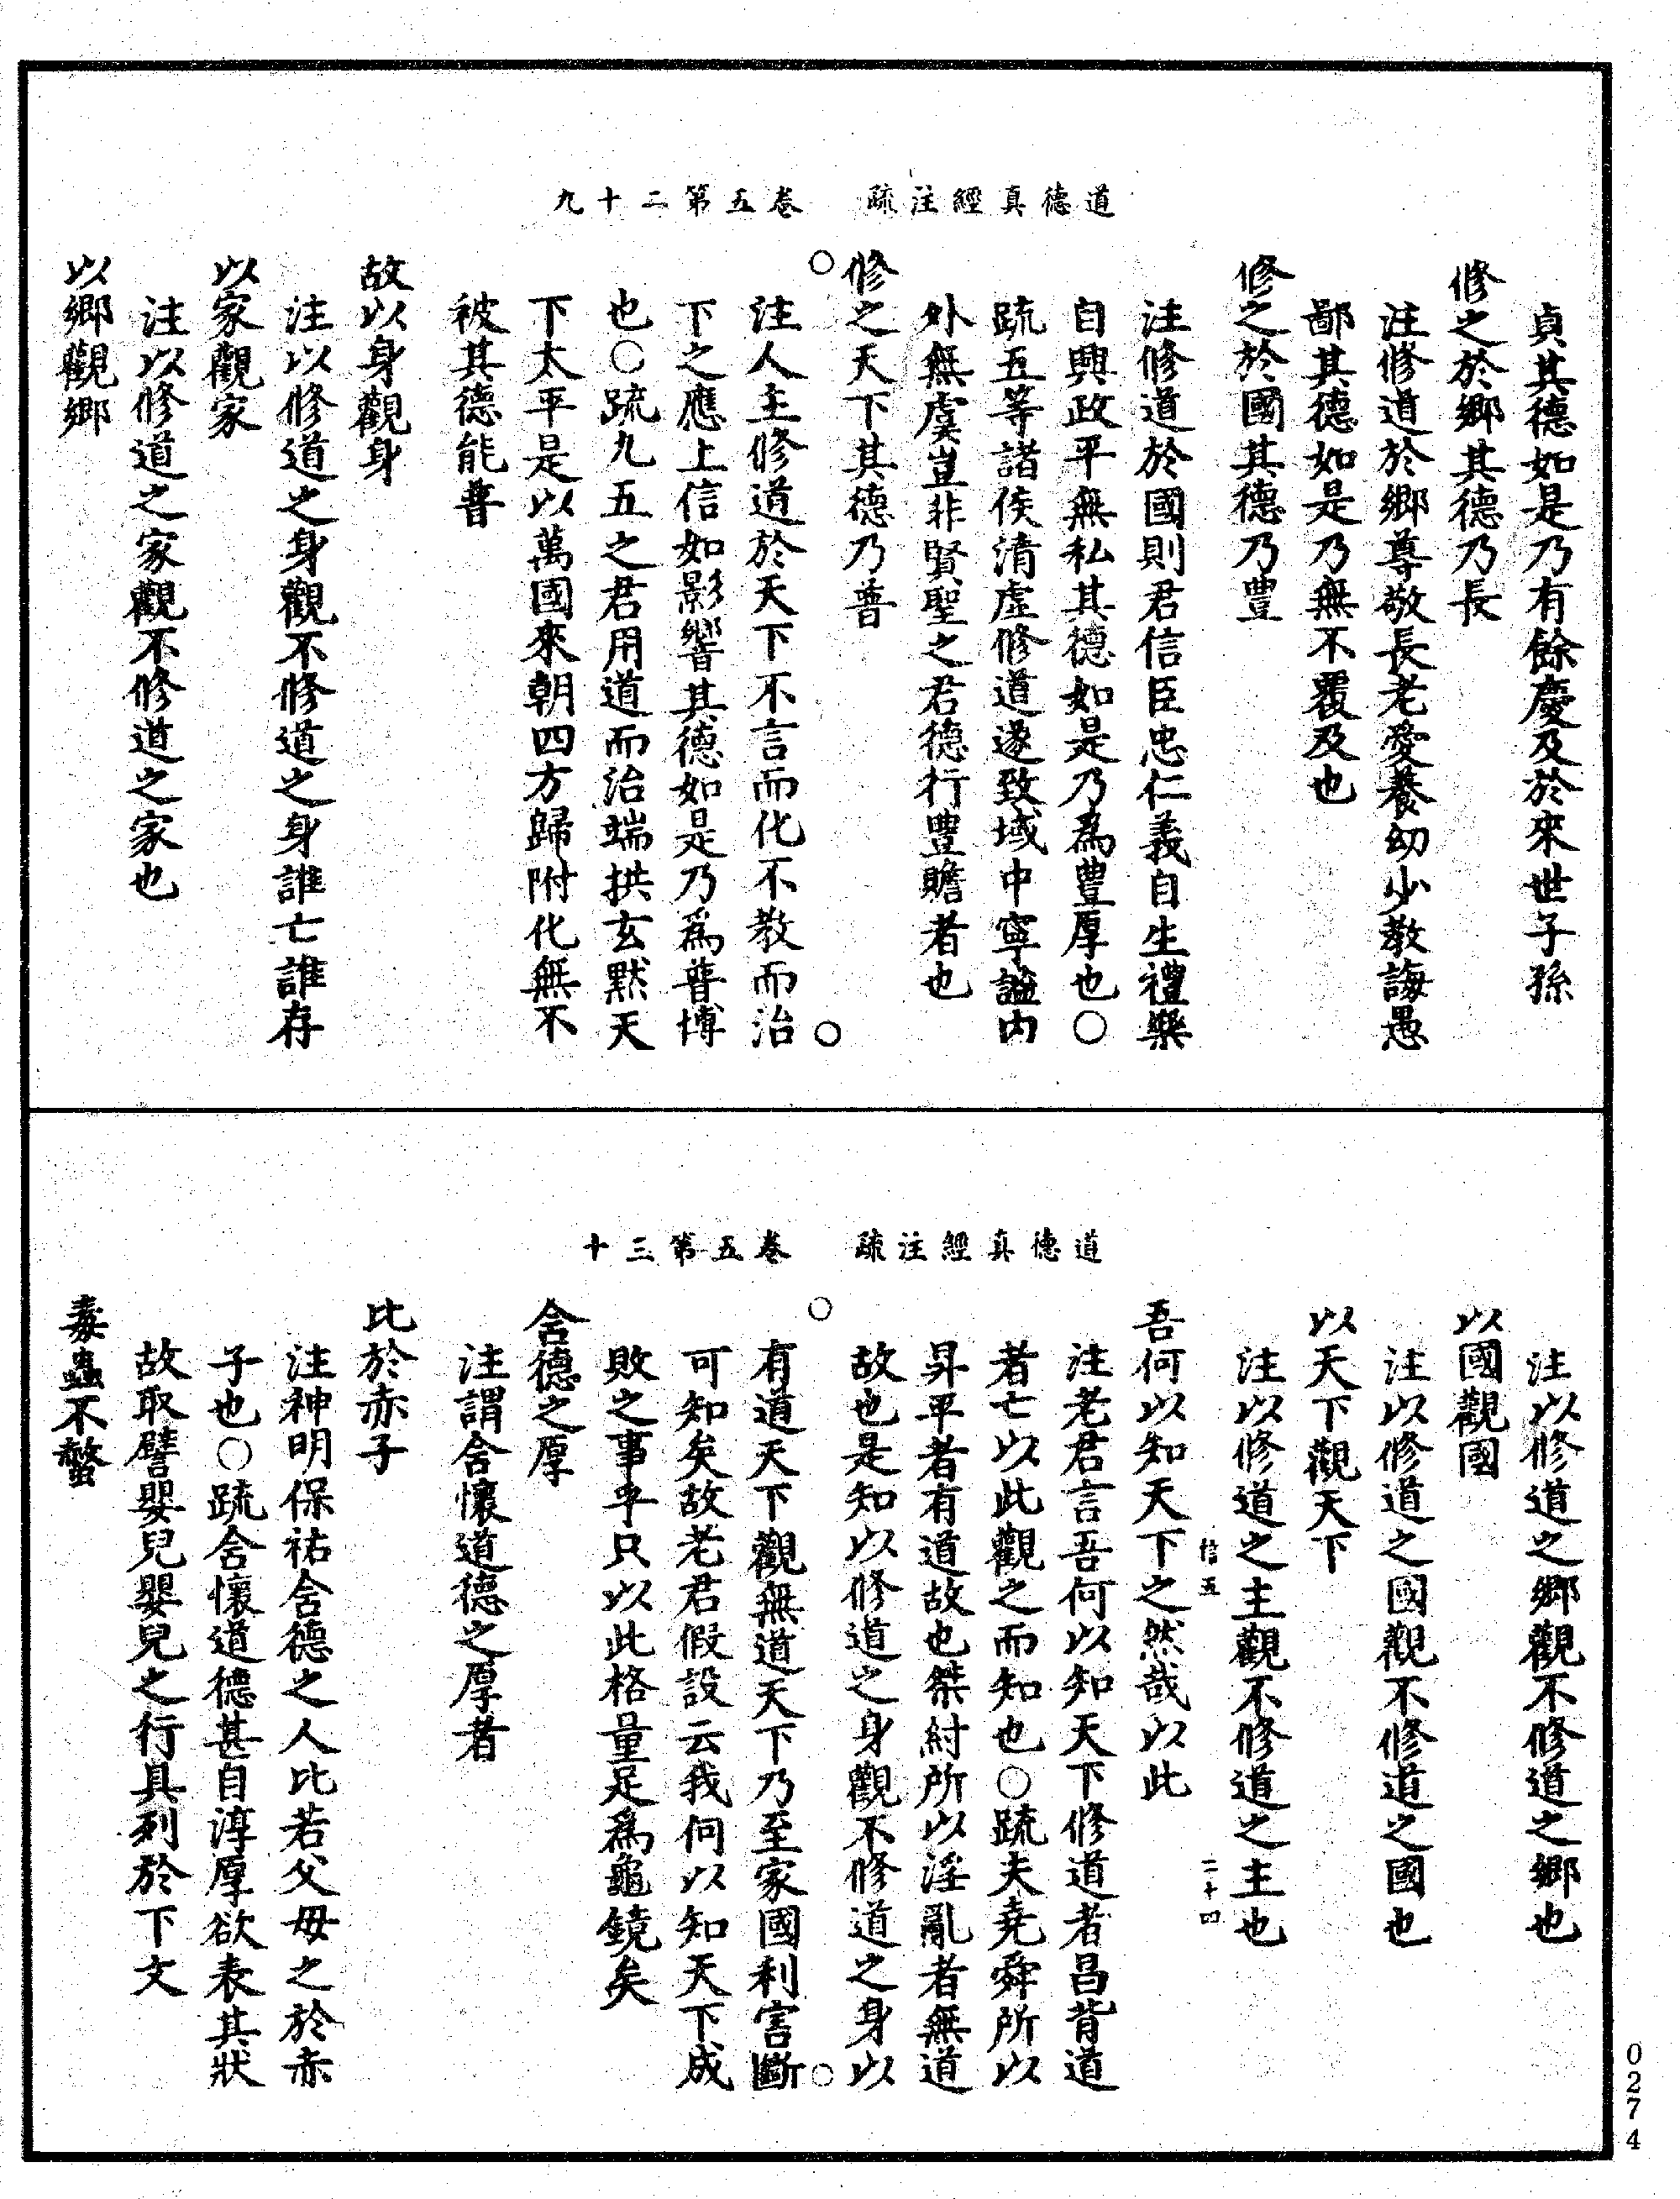 道德真經注疏　卷五第二十九
貞其德如是乃有餘慶及於來世子孫
修之於鄉其德乃長
注修道於鄉尊敬長老愛養幼少教誨愚
鄙其德如是乃無不覆及也
修之於國其德乃豐
注修道於國則君信臣忠仁義自生禮樂
自興政平無私其德如是乃為豐厚也○
疏五等諸侯清虛修道遂致域中寧謐內
外無虞豈非賢聖之君德行豐贍者也
修之天下其德乃普
注人主修道於天下不言而化不教而治
下之應上信如影響其德如是乃爲普博
也○疏九五之君用道而治端拱玄默天
下太平是以萬國來朝四方歸附化無不
被其德能普
故以身觀身
注以修道之身觀不修道之身誰亡誰存
以家觀家
注以修道之家觀不修道之家也
以鄉觀鄉
道德真經注疏　卷五第三十
注以修道之鄉觀不修道之鄉也
以國觀國
注以修道之國觀不修道之國也
以天下觀天下
注以修道之主觀不修道之主也
信五　二十四
吾何以知天下之然哉以此
注老君言吾何以知天下修道者昌背道
者亡以此觀之而知也○疏夫堯舜所以
昇平者有道故也桀紂所以淫亂者無道
故也是知以修道之身觀不修道之身以
有道天下觀無道天下乃至家國利害斷
可知矣故老君假設云我何以知天下成
敗之事乎只以此格量足爲龜鏡矣
含德之厚
注謂含懷道德之厚者
比於赤子
注神明保祐含德之人比若父母之於赤
子也○疏含懷道德甚自淳厚欲表其狀
故取譬嬰兒嬰兒之行具列於下文
毒蟲不螫
0274